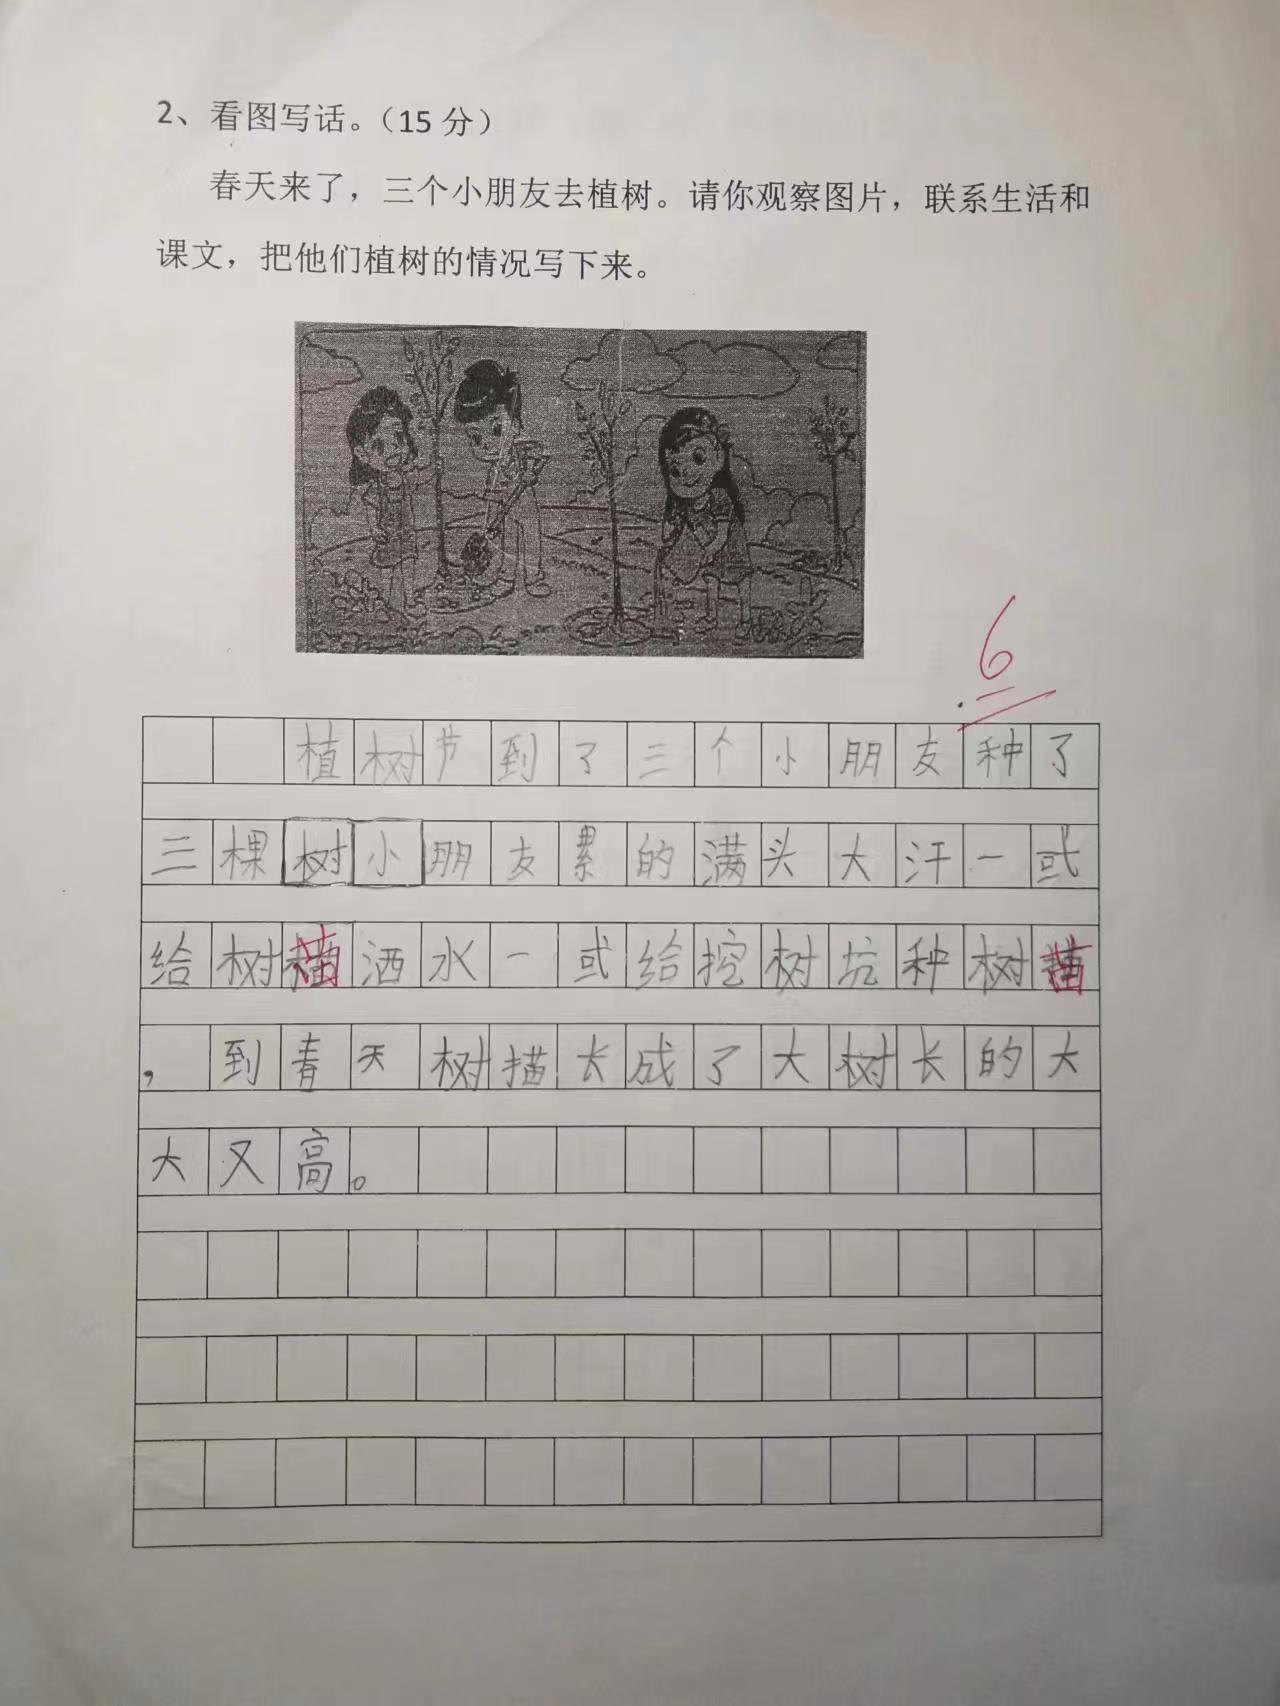 2、看图写话。（15 分）
春天来了，三个小朋友去植树。请你观察图片，联系生活和
课文，把他们植树的情况写下来。
6
植树节到了三个小朋友种了
三棵树小朋友累的满头大汗一或
给树苗洒水一或给挖树坑种树苗
，到春天树描长成了大树长的大
大又高。